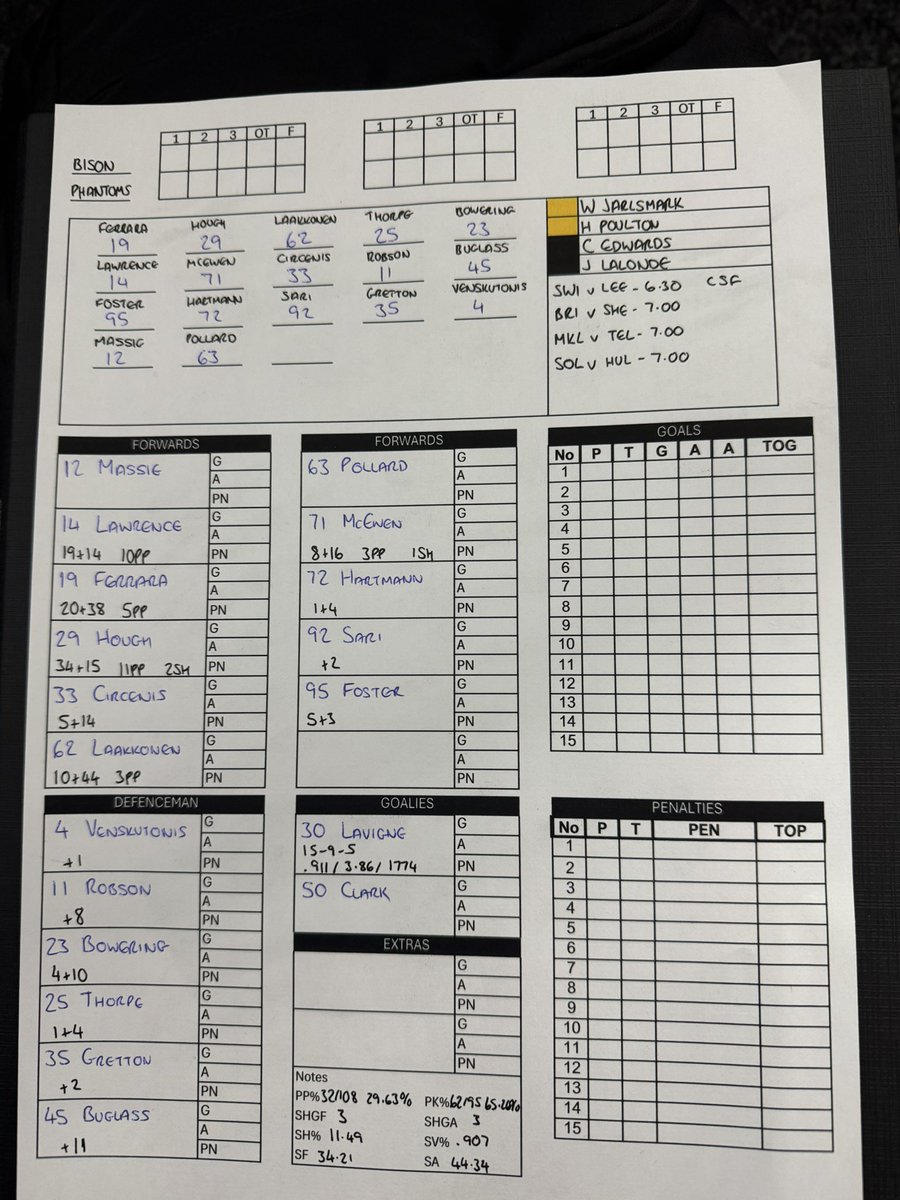 1 2 3 OT F
1 2 3 OT F
1 2 3 OT F
BISON
PHANTOMS
FERRARA HOUGH LAAKKONEN THORPE BOWERING
19 29 62 25 23
LAWRENCE MCEWEN CIRCENIS ROBSON BUGLASS
14 71 33 11 45
FOSTER HARTMANN SARI GRETTON VENSKUTONIS
95 72 92 35 4
MASSIE POLLARD
12 63
W JARLSMARK
H POULTON
C EDWARDS
J LALONDE
SWI v LEE - 6.30 CSF
BRI v SHE - 7.00
MKL v TEL - 7.00
SOL v HUL - 7.00
FORWARDS
12 MASSIE G
A
PN
14 LAWRENCE G
A
19+14 10PP PN
19 FERRARA G
A
20+38 5PP PN
29 HOUGH G
A
34+15 11PP 2SH PN
33 CIRCENIS G
A
5+14 PN
62 LAAKKONEN G
A
10+44 3PP PN
FORWARDS
63 POLLARD G
A
PN
71 MCEWEN G
A
8+16 3PP 1SH PN
72 HARTMANN G
A
1+4 PN
92 SARI G
A
+2 PN
95 FOSTER G
A
5+3 PN
G
A
PN
GOALS
No P T G A A TOG
1
2
3
4
5
6
7
8
9
10
11
12
13
14
15
DEFENCEMAN
4 VENSKUTONIS G
A
+1 PN
11 ROBSON G
A
+8 PN
23 BOWERING G
A
4+10 PN
25 THORPE G
A
1+4 PN
35 GRETTON G
A
+2 PN
45 BUGLASS G
A
+11 PN
GOALIES
30 LAVIGNE G
15-9-5 A
.911 / 3.86 / 1774 PN
50 CLARK G
A
PN
EXTRAS
G
A
PN
G
A
PN
Notes
PP% 32/108 29.63% PK% 62/95 65.26%
SHGF 3 SHGA 3
SH% 11.49 SV% .907
SF 34.21 SA 44.34
PENALTIES
No P T PEN TOP
1
2
3
4
5
6
7
8
9
10
11
12
13
14
15